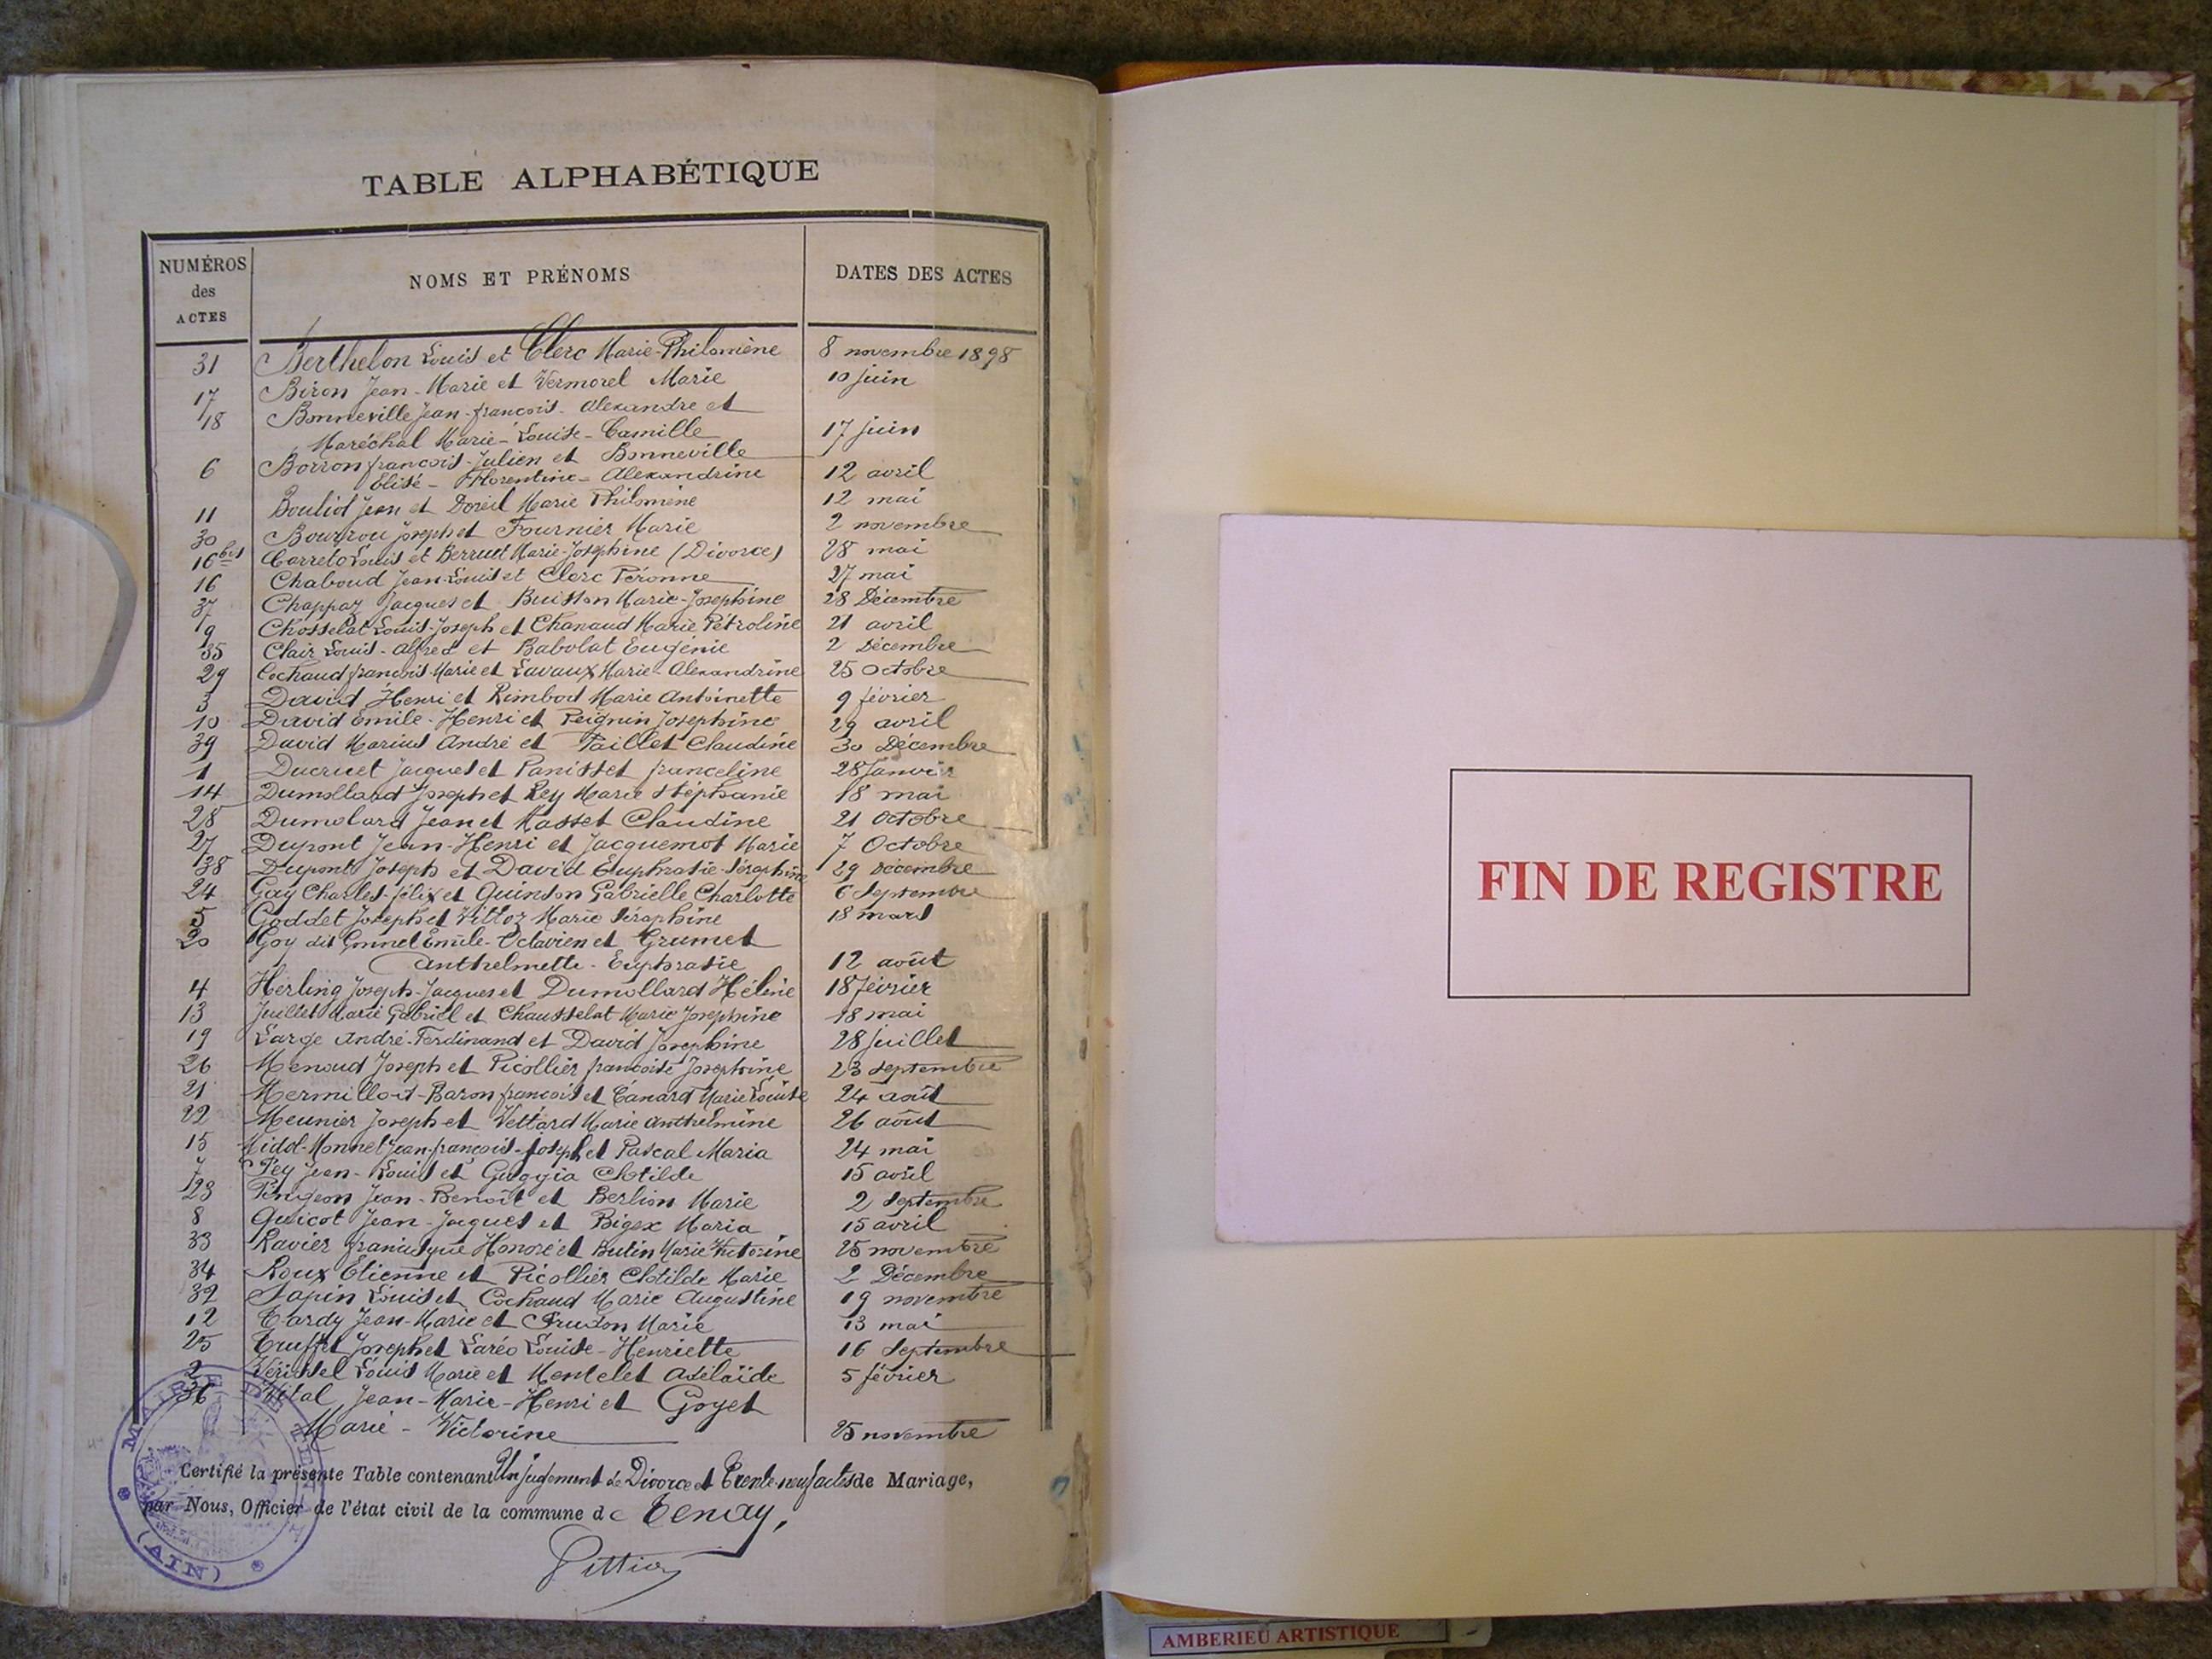 TABLE ALPHABÉTIQUE
NUMÉROS
des
ACTES
NOMS ET PRÉNOMS
DATES DES ACTES
31 Berthelon Louis et Clerc Marie-Philomène 8 novembre 1898
17 Biron Jean-Marie et Vermorel Marie 10 juin
18 Bonneville Jean-françois-Alexandre et
Maréchal Marie-Louise-Camille 17 juin
6 Borron françois-Julien et Bonneville
Elisé-Florentine-Alexandrine 12 avril
11 Bouliot Jean et Doreil Marie Philomène 12 mai
30 Bourrou Joseph et Fournier Marie 2 novembre
16 bis Carrelo Louis et Berruet Marie-Josephine (Divorce) 28 mai
16 Chaboud Jean-Louis et Clerc Péronne 27 mai
37 Chappaz Jacques et Buisson Marie-Josephine 28 Décembre
9 Chosselat Louis-Joseph et Chanaud Marie Pétroline 21 avril
35 Clair Louis-Alfred et Babolat Eugénie 2 Décembre
29 Cochaud françois-Marie et Lavaux Marie-Alexandrine 25 Octobre
3 David Henri et Rimbod Marie Antoinette 9 février
10 David Emile-Henri et Peignin Josephine 29 avril
39 David Marius André et Paillet Claudine 30 Décembre
1 Ducruet Jacques et Panisset franceline 28 Janvier
14 Dumollard Joseph et Rey Marie Stéphanie 18 mai
28 Dumolard Jean et Masset Claudine 21 Octobre
27 Dupont Jean-Henri et Jacquemot Marie 7 Octobre
38 Dupont Joseph et David Euphrasie-Séraphine 29 Décembre
24 Gay Charles-félix et Quinson Gabrielle Charlotte 6 Septembre
5 Goddet Joseph et Vittoz Marie Séraphine 18 mars
20 Goy dit Gonnel Emile-Octavien et Grumet
Anthelmette-Euphrasie 12 août
4 Herling Joseph-Jacques et Dumollard Hélène 18 février
13 Juillet Marie Gabriel et Chausselat Marie Josephine 18 mai
19 Large André-Ferdinand et David Josephine 28 juillet
26 Menoud Joseph et Picollier françoise Josephine 23 Septembre
21 Mermillod-Baron françois et Canard Marie Louise 24 août
22 Meunier Joseph et Vettard Marie Anthelmine 26 août
15 Midol-Monnet Jean-françois-Joseph et Pascal Maria 24 mai
7 Pey Jean-Louis et Guggia Clotilde 15 avril
23 Pingeon Jean-Benoît et Berlion Marie 2 Septembre
8 Quicot Jean-Jacques et Bigex Maria 15 avril
33 Ravier françisque Honoré et Butin Marie Victorine 25 novembre
34 Roux Etienne et Picollier Clotilde Marie 2 Décembre
32 Sapin Louis et Cochaud Marie Augustine 19 novembre
12 Tardy Jean-Marie et Marie 13 mai
25 Truffet Joseph et Laréo Louise-Henriette 16 Septembre
2 Vérissel Louis Marie et Montelet Adélaïde 5 février
36 Vital Jean-Marie-Henri et Goyet
Marie-Victorine 25 novembre
Certifié la présente Table contenant Un jugement de Divorce et Trente-neuf actes de Mariage,
par Nous, Officier de l'état civil de la commune de Tenay,
MAIRIE DE TENAY
(AIN)
FIN DE REGISTRE
AMBERIEU ARTISTIQUE